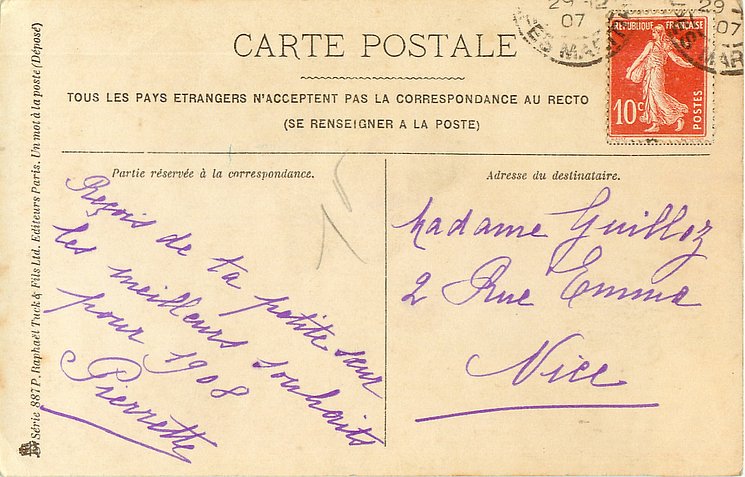 CARTE POSTALE
TOUS LES PAYS ETRANGERS N'ACCEPTENT PAS LA CORRESPONDANCE AU RECTO
(SE RENSEIGNER A LA POSTE)
29 12
07
29
07
REPUBLIQUE FRANÇAISE
10c
POSTES
Partie réservée à la correspondance.
Reçois de ta petite sœur
les meilleurs souhaits
pour 1908
Pierrette
Adresse du destinataire.
Madame Guilloz
2 Rue Emma
Nice
Série 887 P. Raphaël Tuck & Fils Ltd. Editeurs Paris. Un mot à la poste (Déposé)